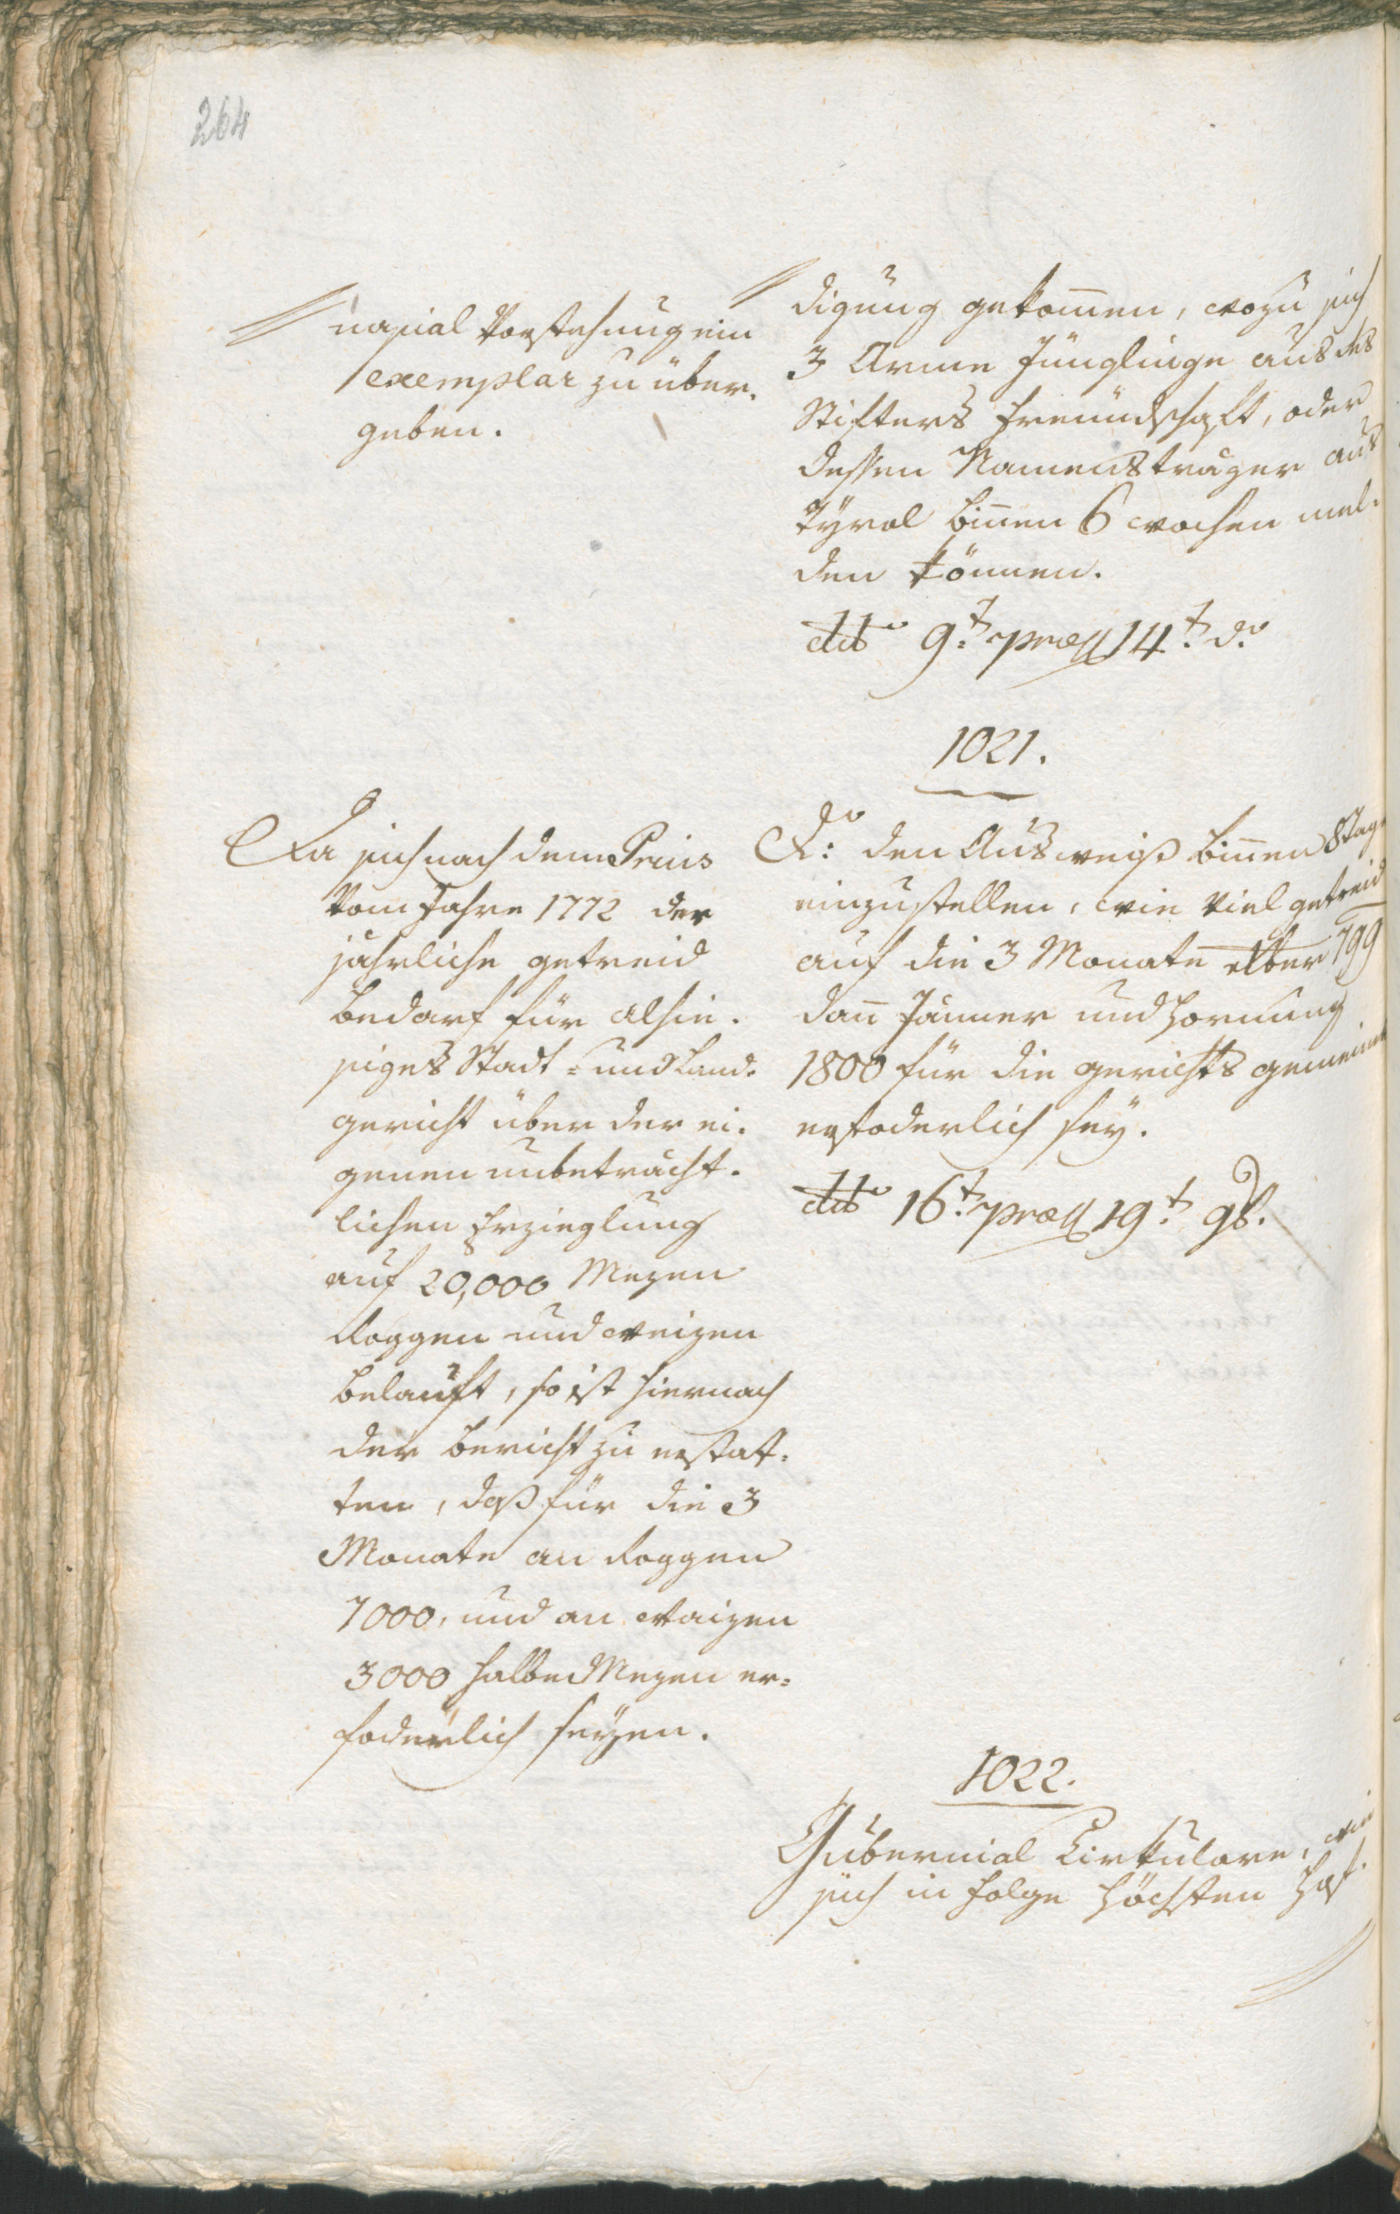 264
nasial Vorstehung ein
exemplar zu über-
geben.
digung gekom̄en, wozu sich
3 Arme Jünglinge aus des
Stifters Freundschaft, oder
dessen Namensträger aus
Tyrol biñen 6 wochen mel-
den können.
ddto 9t praes 14t do
1021.
Da sich nach dem Prius
vom Jahre 1772 der
jährliche getreid
bedarf für alhie-
siges Stadt- und Land-
gericht über der ei-
genen unbeträcht-
lichen Erzieglung
auf 20,000 Mezen
Roggen und weizen
belauft, so ist hiernach
der bericht zu erstat-
ten, daß für die 3
Monate an Roggen
7000, und an Waizen
3000 halbe Mezen er-
foderlich seyen.
do den Ausweiß biñen 8 Tag
einzustellen, wie viel getreid
auf die 3 Monate xber 799
dañ Jänner und Hornung
1800 für die gerichts gemeinde
erfoderlich sey.
ddto 16t praes 19t 9b.
1022.
Gubernial Cirkulare, wie
sich in Folge höchsten Hof-